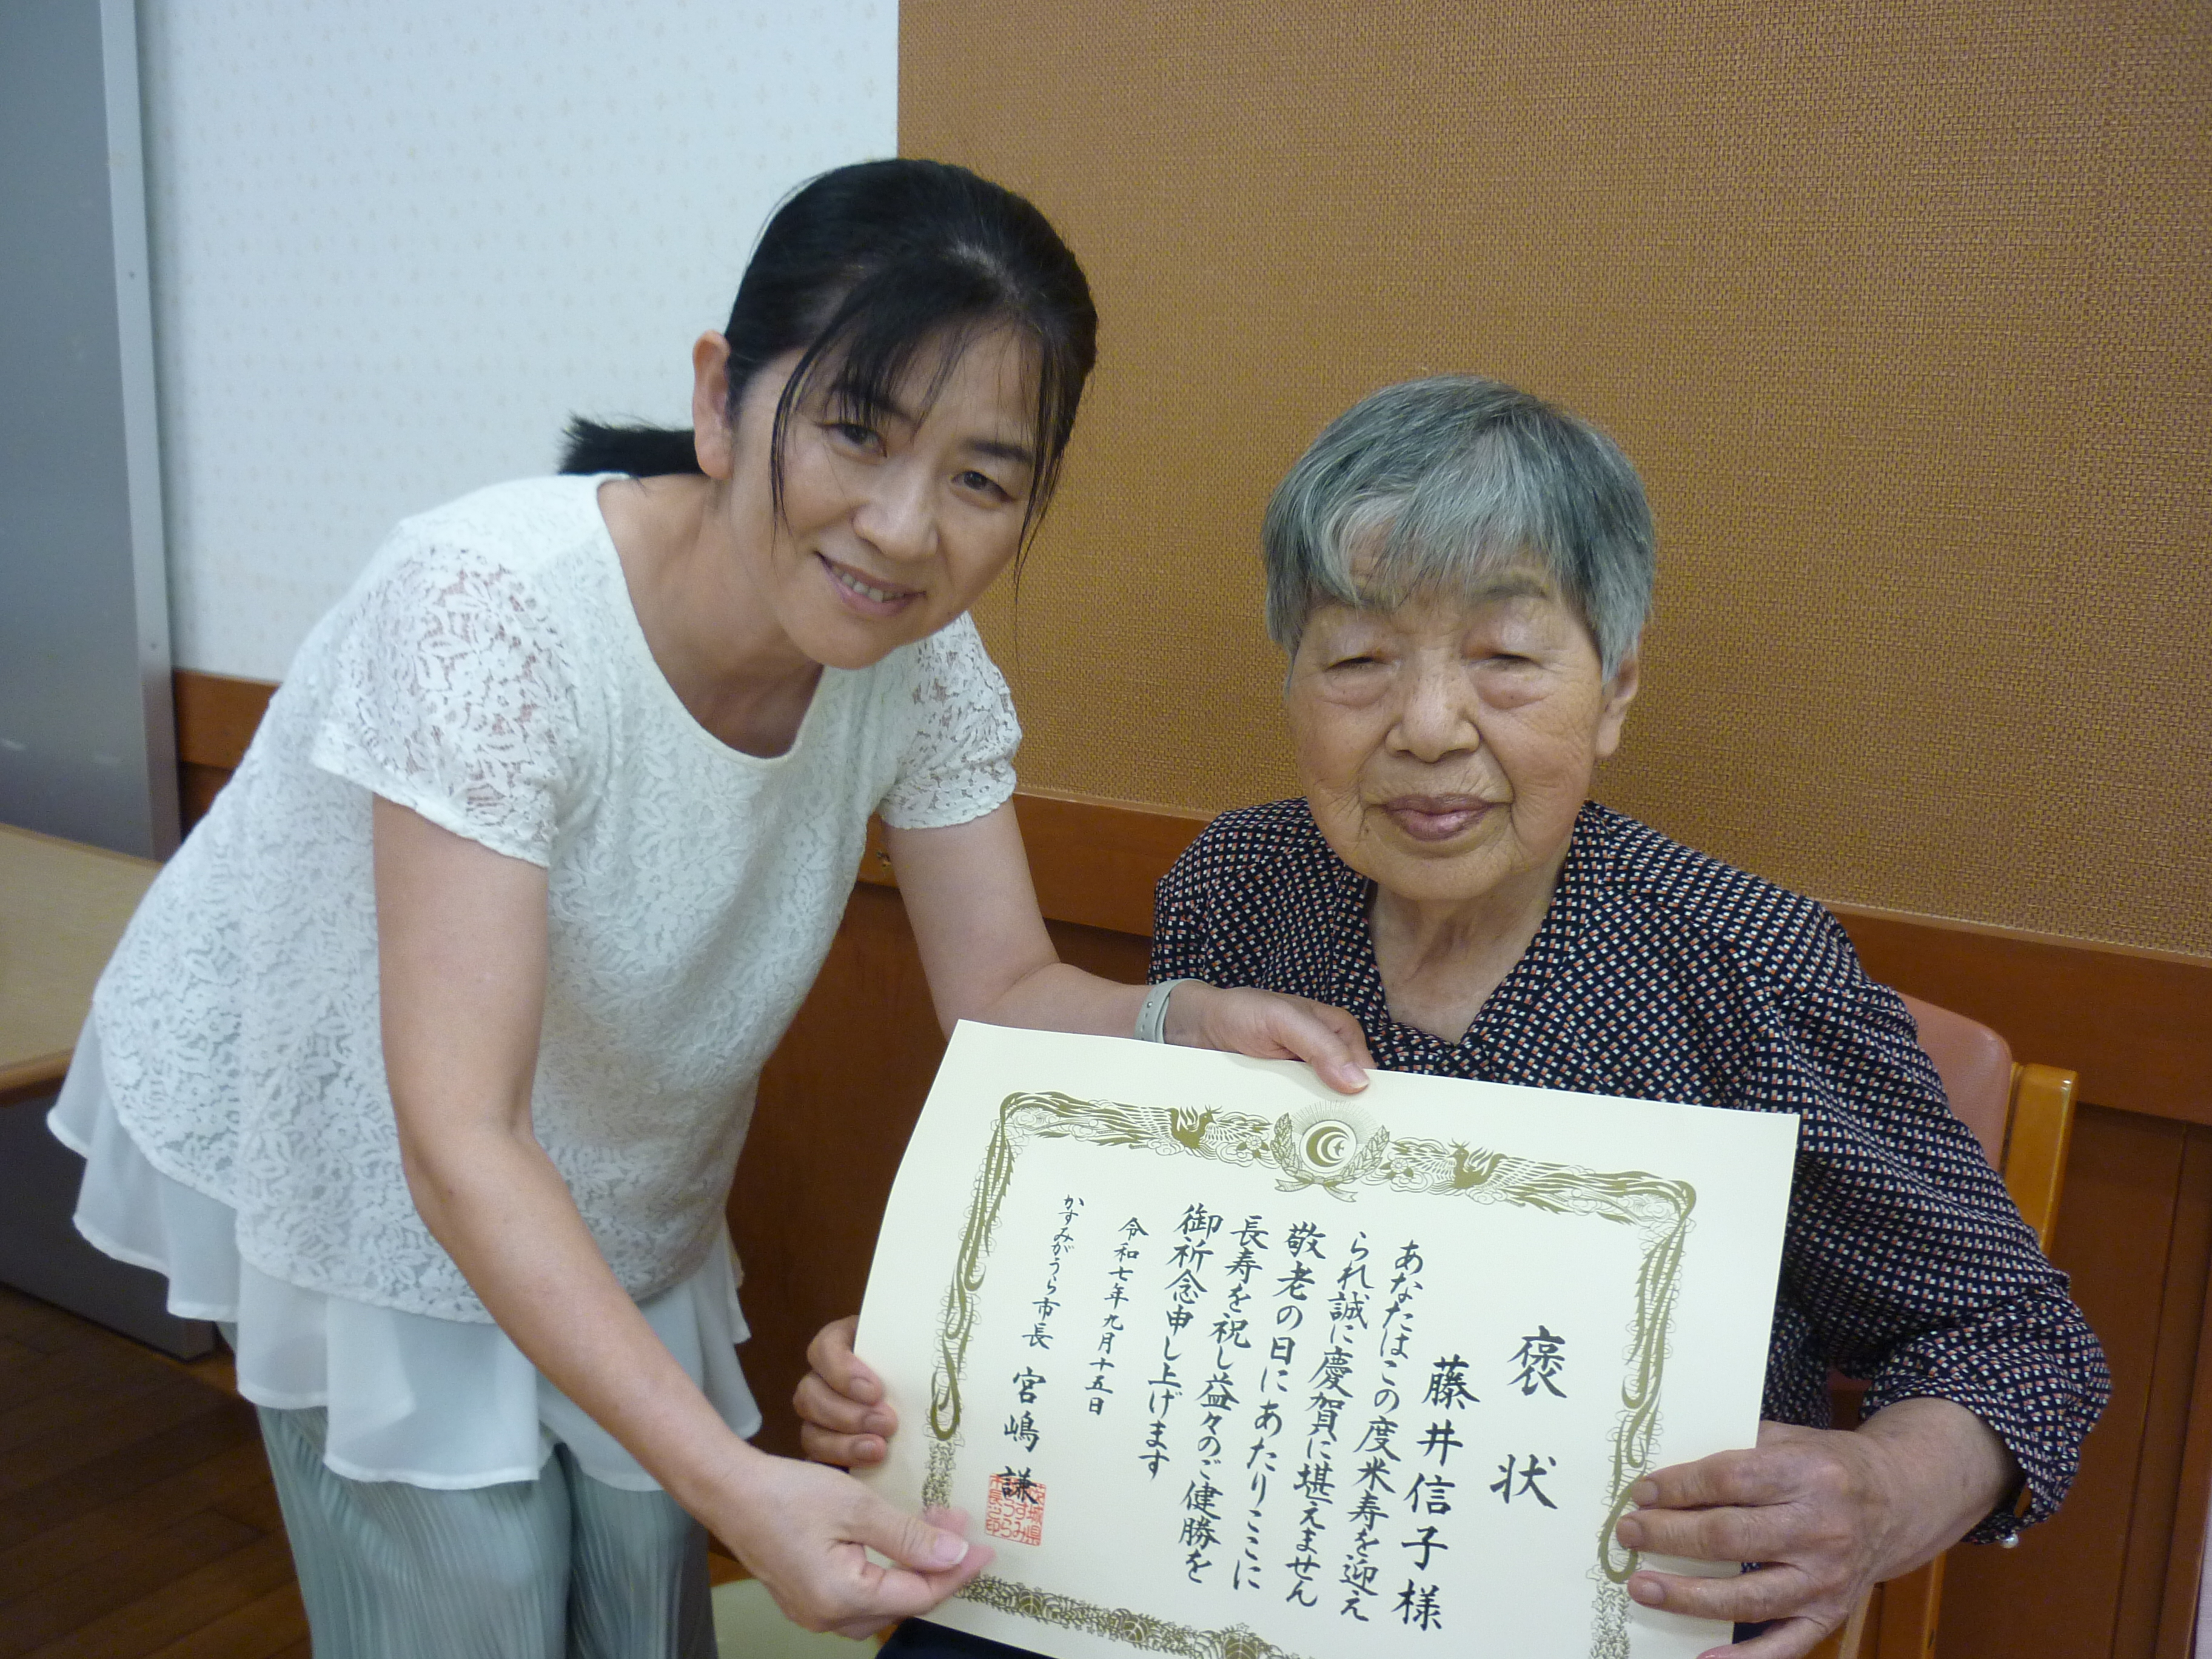 褒状
藤井信子様
あなたはこの度米寿を迎え
られ誠に慶賀に堪えません
敬老の日にあたりここに
長寿を祝し益々のご健勝を
御祈念申し上げます
令和七年九月十五日
かすみがうら市長 宮嶋 謙
茨城県
かすみ
がうら
市長之印